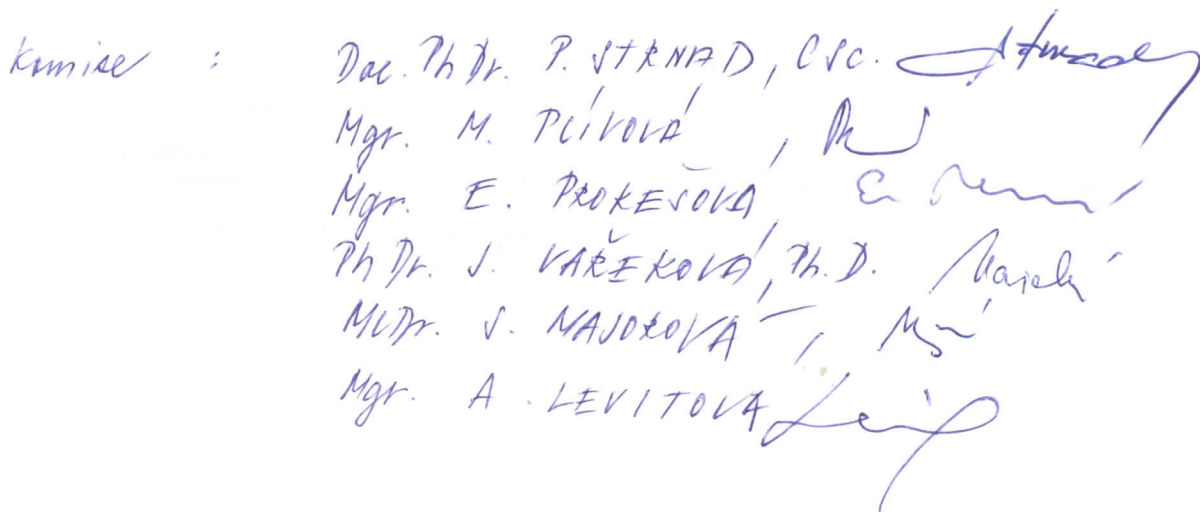 Komise :
Doc. PhDr. P. STRNAD, CSC. Strnad
Mgr. M. PLÍVOVÁ,
Mgr. E. PROKEŠOVÁ,
PhDr. J. VAŘEKOVÁ, Ph.D.
MUDr. S. MAJOROVÁ,
Mgr. A. LEVITOVÁ